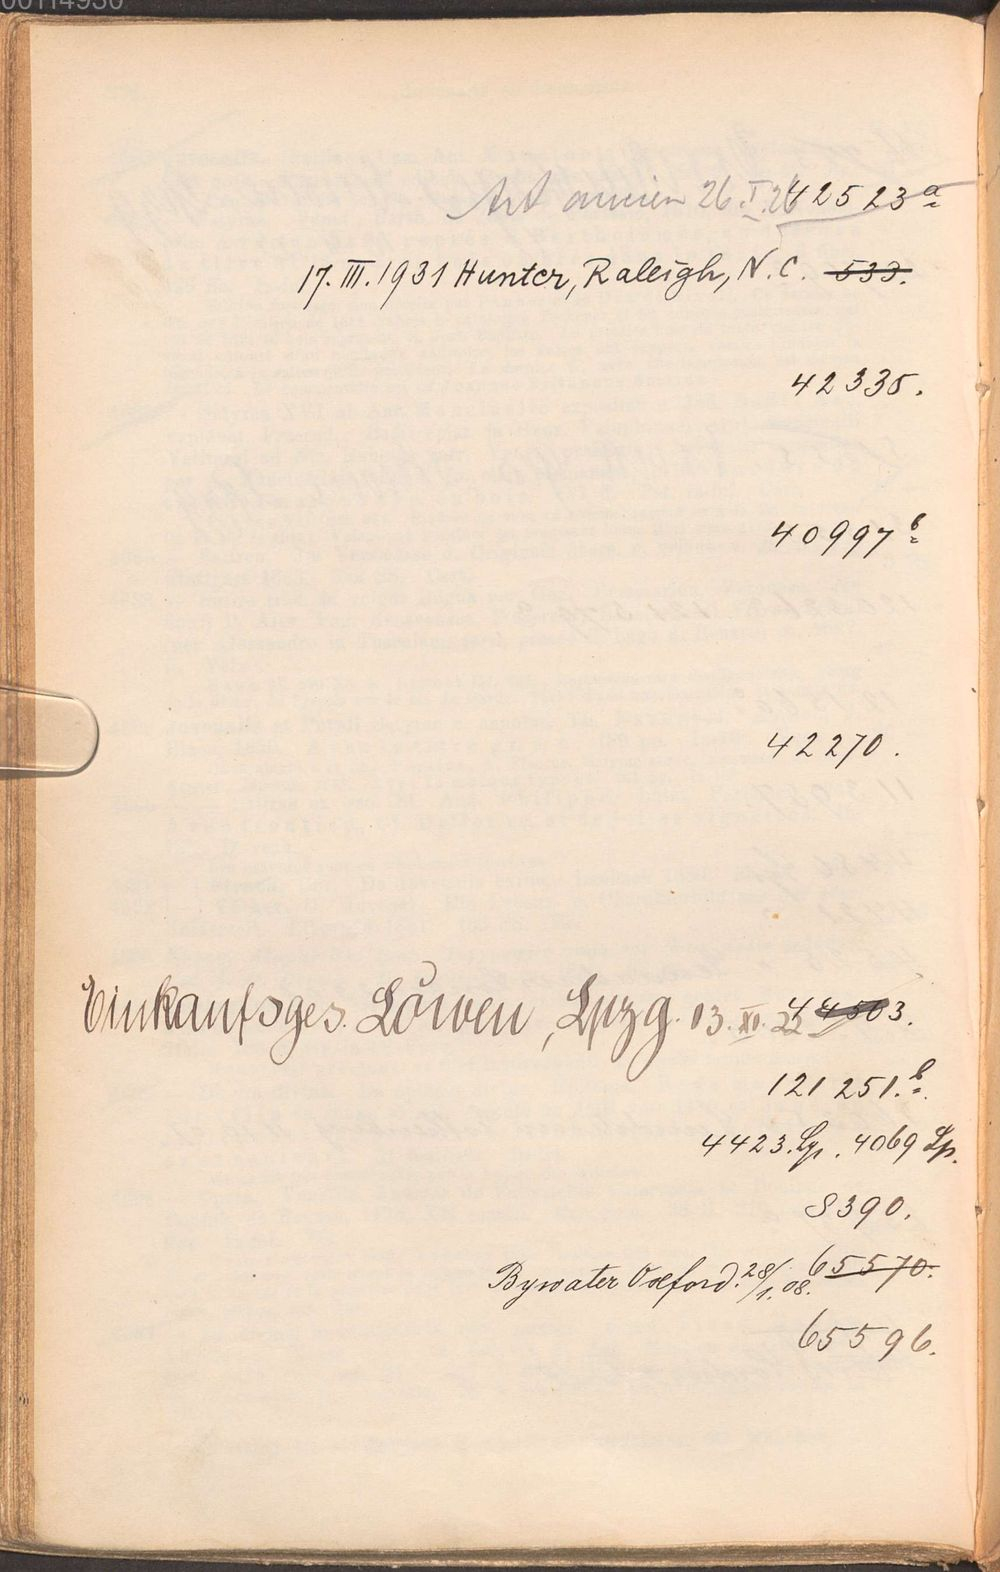 00114930
Art ancien 26.I.26 42523a
17.III.1931 Hunter, Raleigh, N.C. 533.
42335.
40997b
42270.
Einkaufsges. Löwen, Lpzg. 03.XI.22 44503.
121251.b
4423.Lp. 4069 Lp.
8390.
Bywater Oxford. 28/1.08. 65570.
65596.